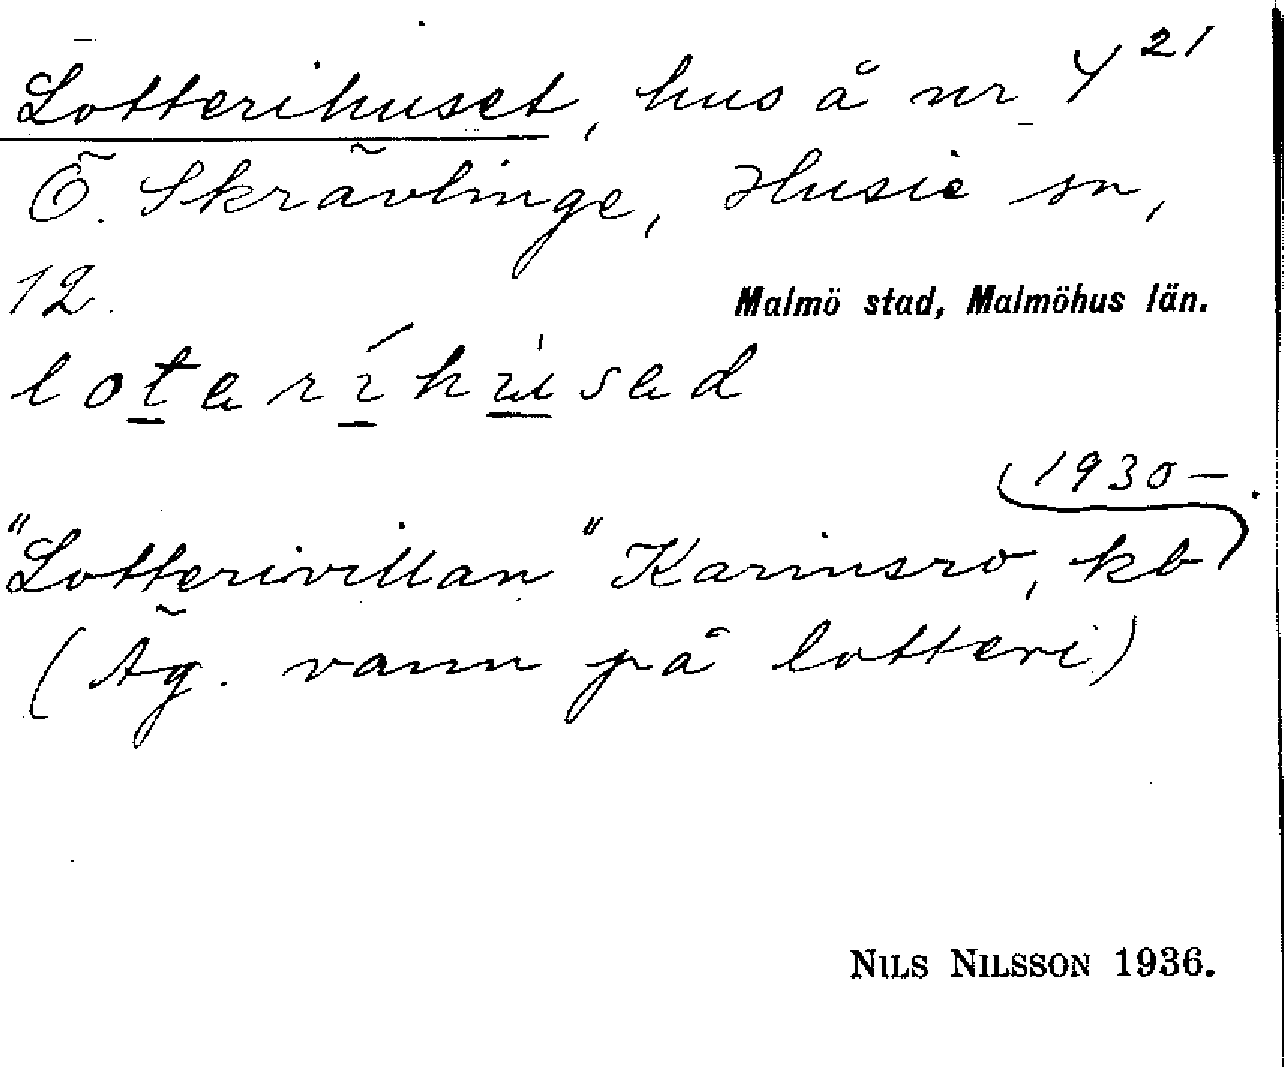 Lotterihuset, hus å nr 4²¹
Ö. Skrävlinge, Husie sn,
12.
Malmö stad, Malmöhus län.
lotaríhúsad
1930–.
"Lotterivillan" Karinsro, kb
(Äg. vann på lotteri)
NILS NILSSON 1936.